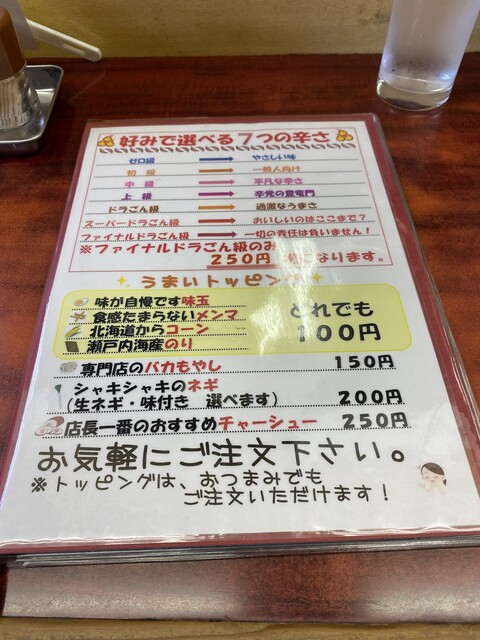 好みで選べる7つの辛さ
ゼロ級 やさしい味
初級 一般人向け
中級 平凡な辛さ
上級 辛党の登竜門
ドラごん級 過激なうまさ
スーパードラごん級 おいしいのはここまで?
ファイナルドラごん級 一切の責任は負いません!
※ファイナルドラごん級のみ
250円 になります。
うまいトッピング
味が自慢です味玉
食感たまらないメンマ
北海道からコーン
瀬戸内海産のり
どれでも
100円
専門店のバカもやし 150円
シャキシャキのネギ
(生ネギ・味付き 選べます) 200円
店長一番のおすすめチャーシュー 250円
お気軽にご注文下さい。
※トッピングは、おつまみでも
ご注文いただけます!